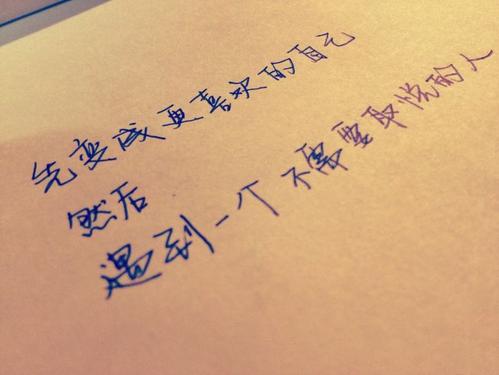 先变成更喜欢的自己
然后
遇到一个不需要取悦的人